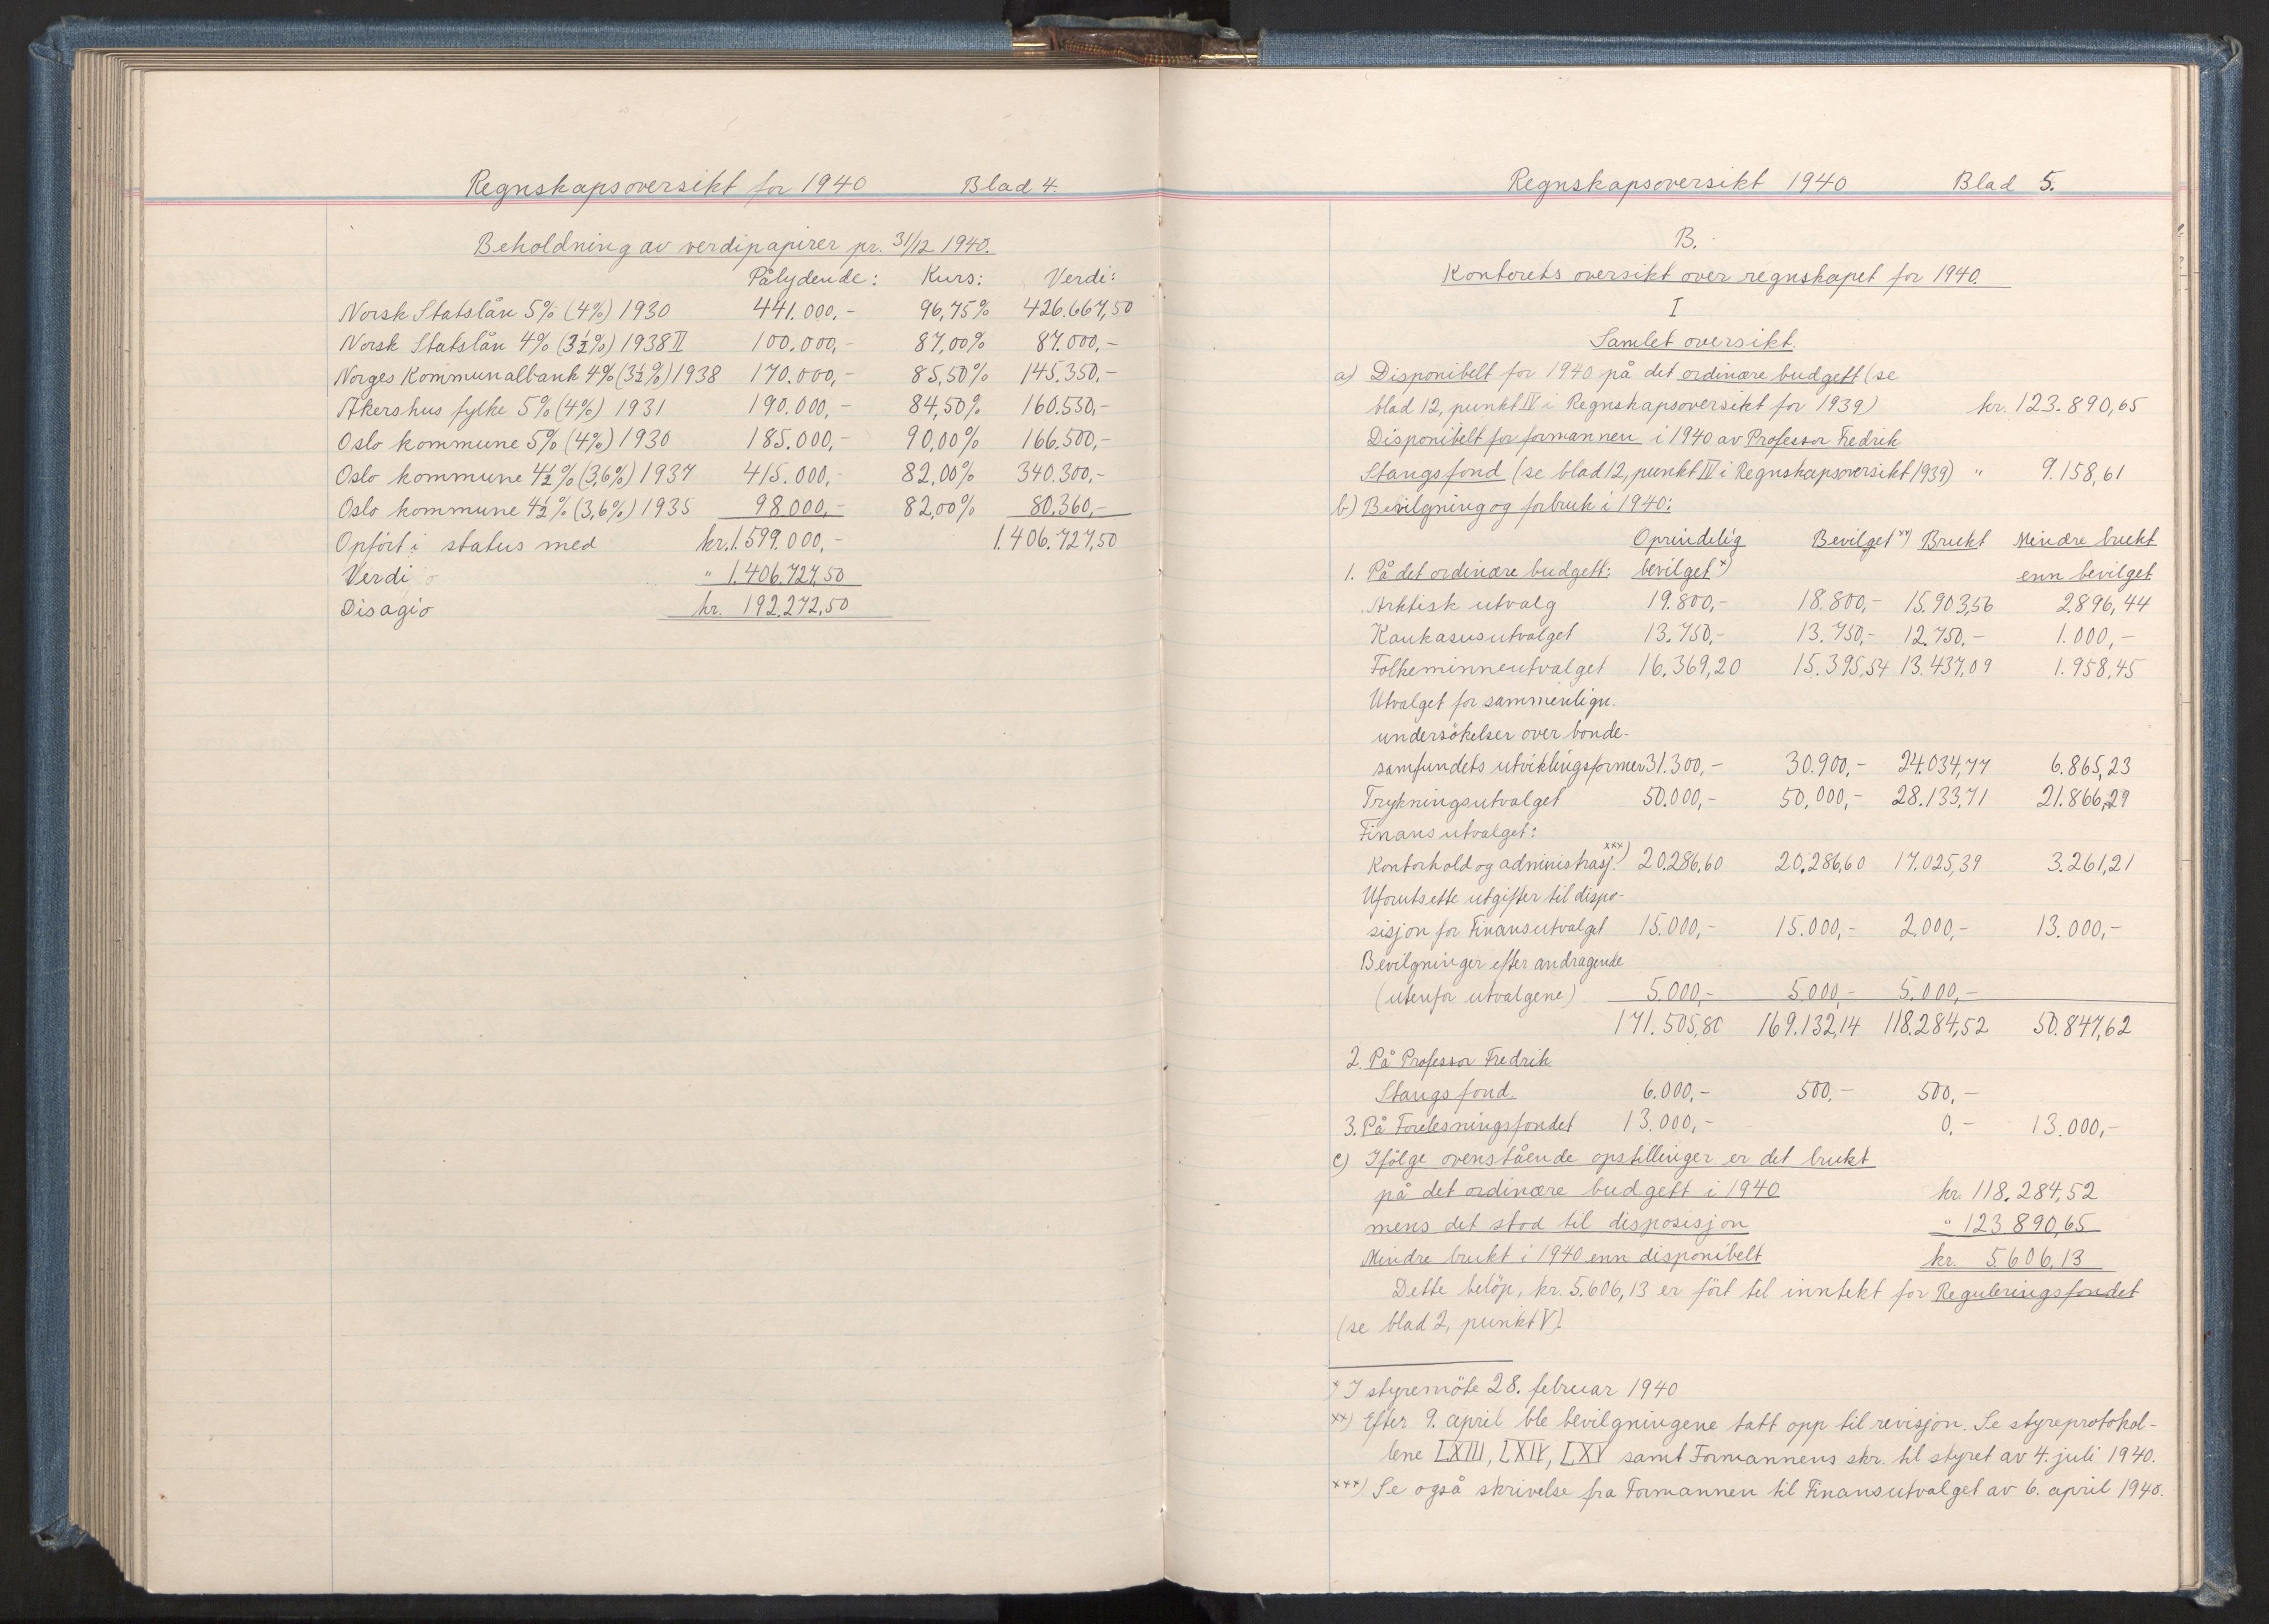 Regnskapsoversikt for 1940 Blad 4.
Beholdning av verdipapirer pr. 31/12 1940.
Pålydende: Kurs: Verdi:
Norsk Statslån 5% (4%) 1930 441.000,- 96,75% 426.667,50
Norsk Statslån 4% (3½%) 1938 II 100.000,- 87,00% 87.000,-
Norges Kommunalbank 4% (3½%) 1938 170.000,- 85,50% 145.350,-
Akershus fylke 5% (4%) 1931 190.000,- 84,50% 160.550,-
Oslo kommune 5% (4%) 1930 185.000,- 90,00% 166.500,-
Oslo kommune 4½% (3,6%) 1937 415.000,- 82,00% 340.300,-
Oslo kommune 4½% (3,6%) 1935 98.000,- 82,00% 80.360,-
Opført i status med kr. 1.599.000,- 1.406.727,50
Verdi " 1.406.727,50
Disagio kr. 192.272,50
Regnskapsoversikt 1940 Blad 5.
B.
Kontorets oversikt over regnskapet for 1940.
I
Samlet oversikt.
a) Disponibelt for 1940 på det ordinære budgett (se
blad 12, punkt IV i Regnskapsoversikt for 1939) kr. 123.890,65
Disponibelt for formannen i 1940 av Professor Fredrik
Stangs fond (se blad 12, punkt IV i Regnskapsoversikt 1939) " 9.158,61
b) Bevilgning og forbruk i 1940:
Oprindelig Bevilget xx) Brukt Mindre brukt
1. På det ordinære budgett: bevilget x) enn bevilget
Arktisk utvalg 19.800,- 18.800,- 15.903,56 2.896,44
Kaukasusutvalget 13.750,- 13.750,- 12.750,- 1.000,-
Folkeminneutvalget 16.369,20 15.395,54 13.437,09 1.958,45
Utvalget for sammenlign.
undersøkelser over bonde-
samfundets utviklingsformer 31.300,- 30.900,- 24.034,77 6.865,23
Trykningsutvalget 50.000,- 50.000,- 28.133,71 21.866,29
Finansutvalget:
Kontorhold og administrasj. xxx) 20.286,60 20.286,60 17.025,39 3.261,21
Uforutsette utgifter til dispo-
sisjon for Finansutvalget 15.000,- 15.000,- 2.000,- 13.000,-
Bevilgninger efter andragende
(utenfor utvalgene) 5.000,- 5.000,- 5.000,-
171.505,80 169.132,14 118.284,52 50.847,62
2. På Professor Fredrik
Stangs fond. 6.000,- 500,- 500,-
3. På Forelesningsfondet 13.000,- 0,- 13.000,-
c) Ifølge ovenstående opstillinger er det brukt
på det ordinære budgett i 1940 kr. 118.284,52
mens det stod til disposisjon " 123.890,65
Mindre brukt i 1940 enn disponibelt kr. 5.606,13
Dette beløp, kr. 5.606,13 er ført til inntekt for Reguleringsfondet
(se blad 2, punkt V).
x I styremøte 28. februar 1940
xx) Efter 9. april ble bevilgningene tatt opp til revisjon. Se styreprotokol-
lene LXIII, LXIV, LXV samt Formannens skr. til styret av 4. juli 1940.
xxx) Se også skrivelse fra Formannen til Finansutvalget av 6. april 1940.